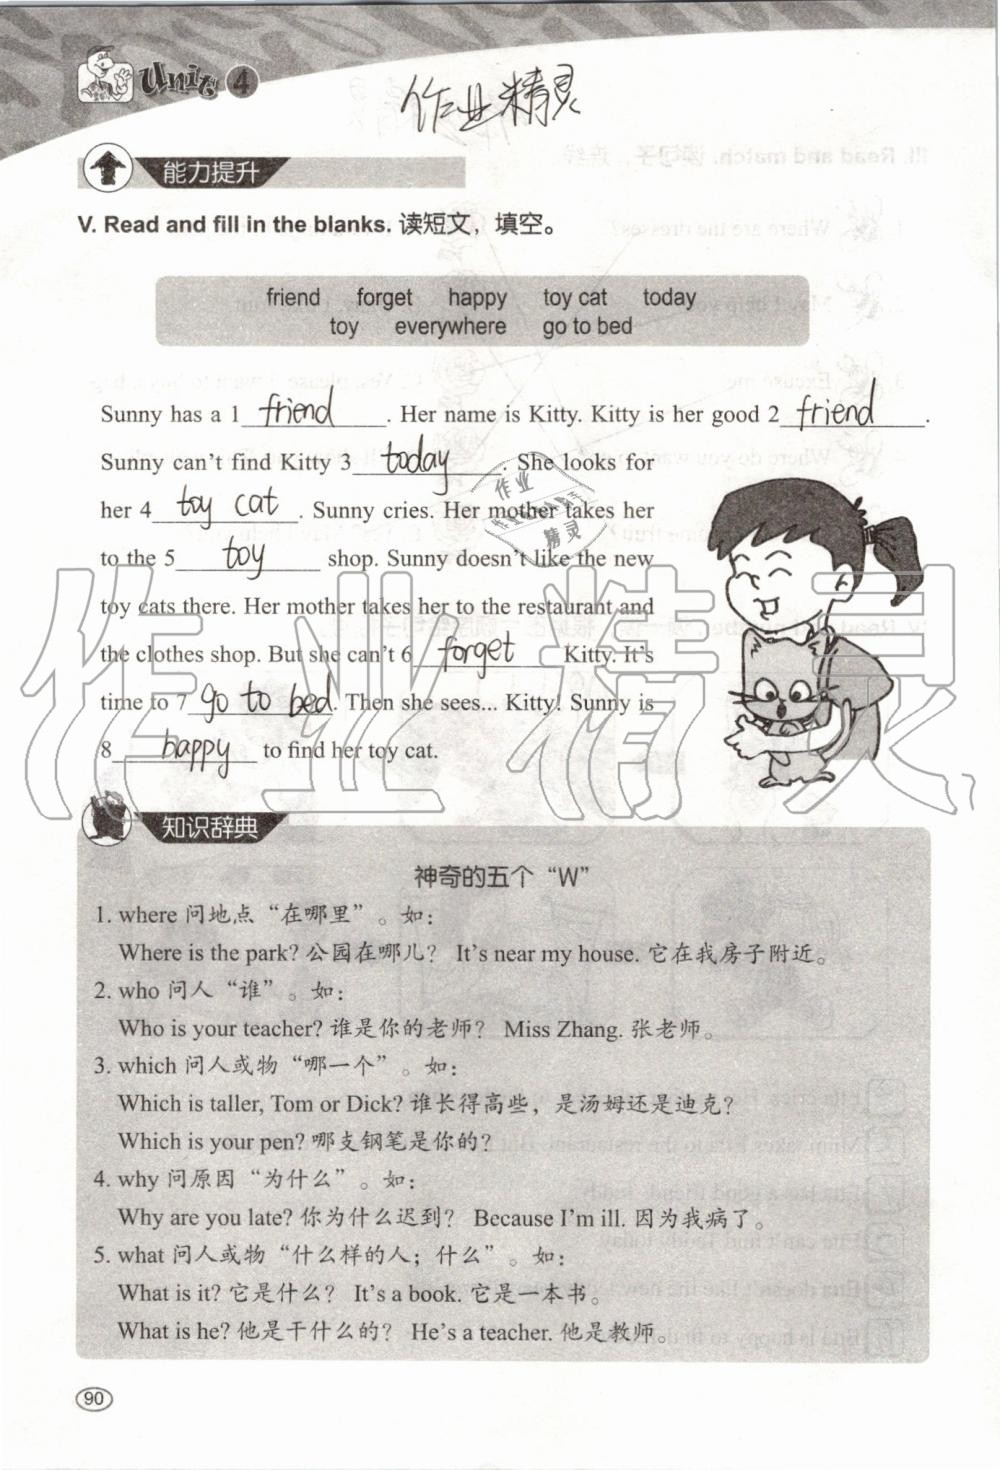 Unit 4
作业精灵
能力提升
V. Read and fill in the blanks. 读短文，填空。
friend forget happy toy cat today
toy everywhere go to bed
Sunny has a 1 friend. Her name is Kitty. Kitty is her good 2 friend.
Sunny can't find Kitty 3 today. She looks for
her 4 toy cat. Sunny cries. Her mother takes her
to the 5 toy shop. Sunny doesn't like the new
toy cats there. Her mother takes her to the restaurant and
the clothes shop. But she can't 6 forget Kitty. It's
time to 7 go to bed. Then she sees... Kitty! Sunny is
8 happy to find her toy cat.
作业精灵
作业精灵
知识辞典
神奇的五个“W”
1. where 问地点“在哪里”。如：
Where is the park? 公园在哪儿？ It's near my house. 它在我房子附近。
2. who 问人“谁”。如：
Who is your teacher? 谁是你的老师？ Miss Zhang. 张老师。
3. which 问人或物“哪一个”。如：
Which is taller, Tom or Dick? 谁长得高些，是汤姆还是迪克？
Which is your pen? 哪支钢笔是你的？
4. why 问原因“为什么”。如：
Why are you late? 你为什么迟到？ Because I'm ill. 因为我病了。
5. what 问人或物“什么样的人；什么”。如：
What is it? 它是什么？ It's a book. 它是一本书。
What is he? 他是干什么的？ He's a teacher. 他是教师。
90